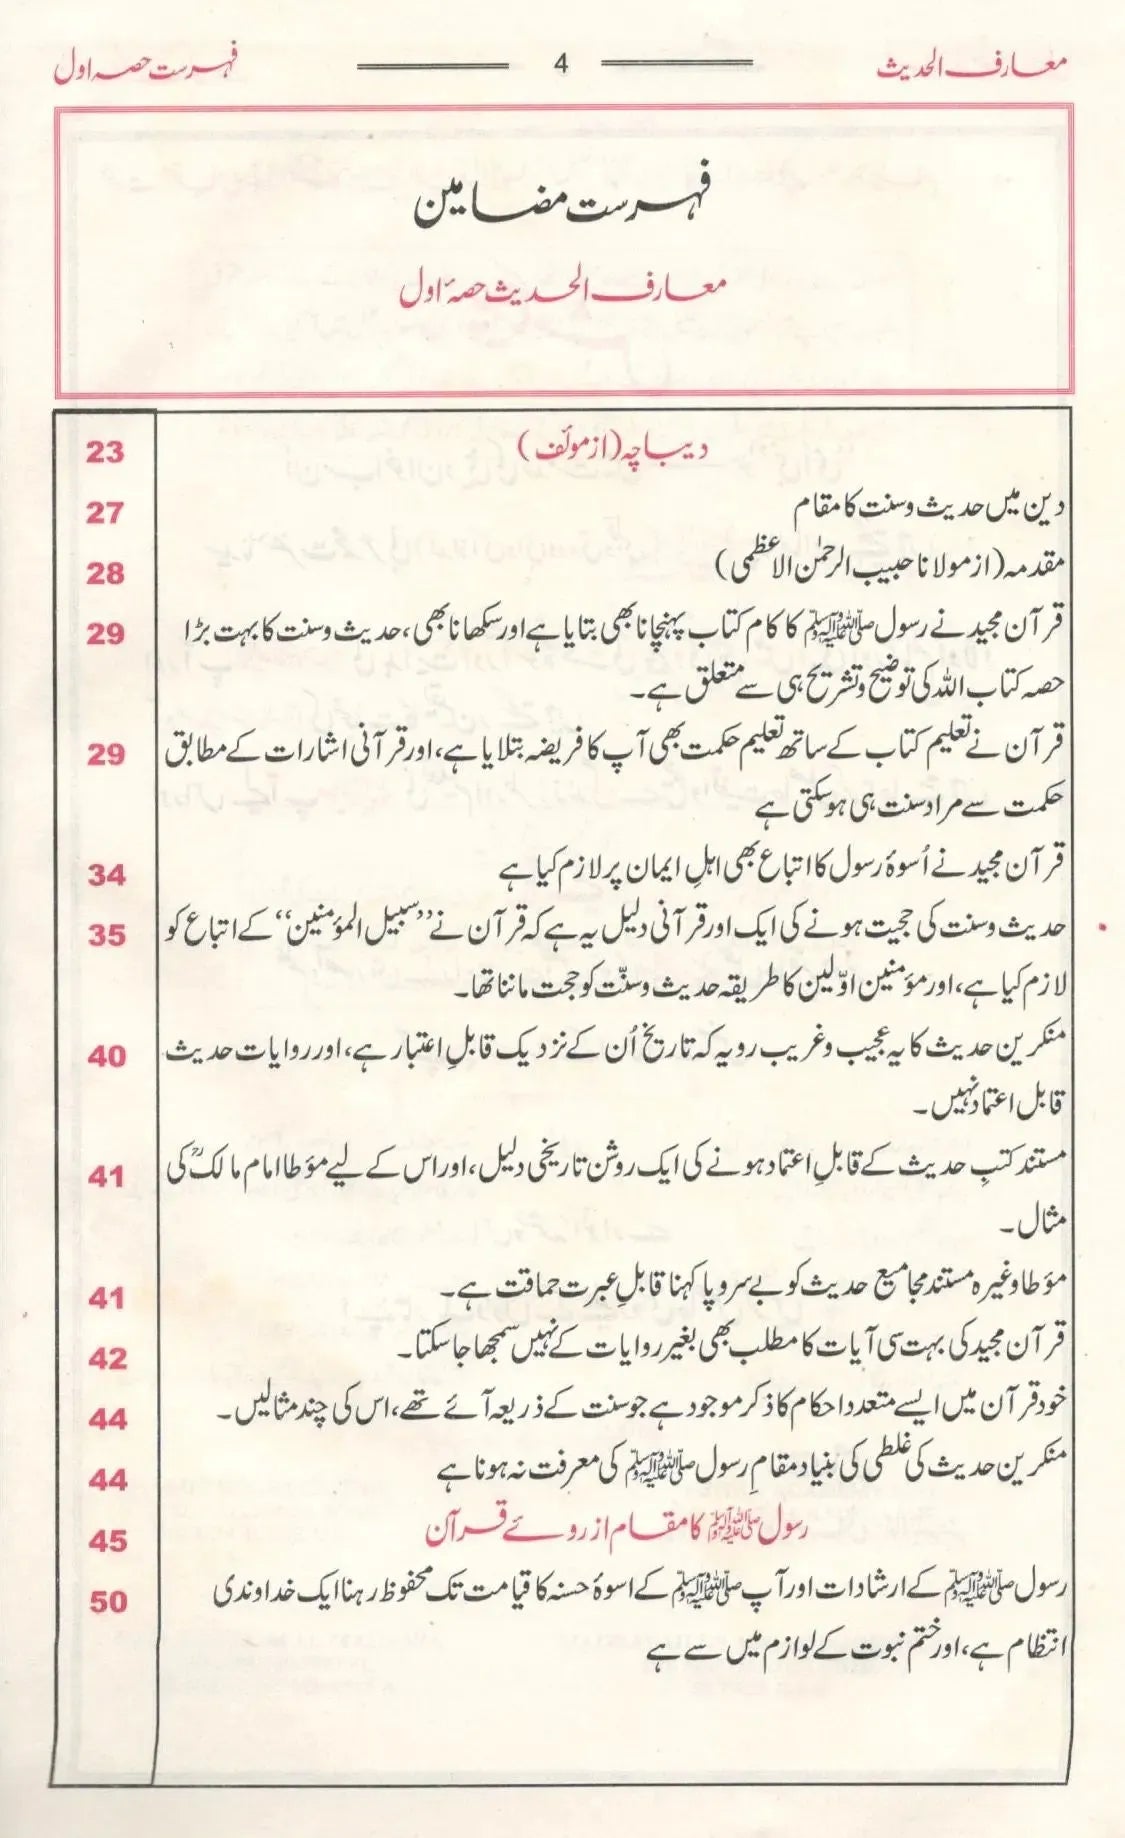 معارف الحدیث 4 فہرست حصہ اول
فہرست مضامین
معارف الحدیث حصۂ اول
دیباچہ (از مؤلف) 23
دین میں حدیث و سنت کا مقام 27
مقدمہ (از مولانا حبیب الرحمٰن الاعظمی) 28
قرآن مجید نے رسول ﷺ کا کام کتاب پہنچانا بھی بتایا ہے اور سکھانا بھی، حدیث و سنت کا بہت بڑا 29
حصہ کتاب اللہ کی توضیح و تشریح ہی سے متعلق ہے۔
قرآن نے تعلیم کتاب کے ساتھ تعلیم حکمت بھی آپ کا فریضہ بتلایا ہے، اور قرآنی اشارات کے مطابق 29
حکمت سے مراد سنت ہی ہو سکتی ہے
قرآن مجید نے اُسوۂ رسول کا اتباع بھی اہلِ ایمان پر لازم کیا ہے 34
حدیث و سنت کی حجیت ہونے کی ایک اور قرآنی دلیل یہ ہے کہ قرآن نے ”سبیل المؤمنین“ کے اتباع کو 35
لازم کیا ہے، اور مؤمنین اوّلین کا طریقہ حدیث و سنّت کو حجت ماننا تھا۔
منکرین حدیث کا یہ عجیب و غریب رویہ کہ تاریخ اُن کے نزدیک قابلِ اعتبار ہے، اور روایات حدیث 40
قابل اعتماد نہیں۔
مستند کتبِ حدیث کے قابلِ اعتماد ہونے کی ایک روشن تاریخی دلیل، اور اس کے لیے مؤطا امام مالکؒ کی 41
مثال۔
مؤطا وغیرہ مستند مجامیع حدیث کو بے سروپا کہنا قابلِ عبرت حماقت ہے۔ 41
قرآن مجید کی بہت سی آیات کا مطلب بھی بغیر روایات کے نہیں سمجھا جا سکتا۔ 42
خود قرآن میں ایسے متعدد احکام کا ذکر موجود ہے جو سنت کے ذریعہ آئے تھے، اس کی چند مثالیں۔ 44
منکرین حدیث کی غلطی کی بنیاد مقامِ رسول ﷺ کی معرفت نہ ہونا ہے 44
رسول ﷺ کا مقام از روئے قرآن 45
رسول ﷺ کے ارشادات اور آپ ﷺ کے اسوۂ حسنہ کا قیامت تک محفوظ رہنا ایک خداوندی 50
انتظام ہے، اور ختم نبوت کے لوازم میں سے ہے